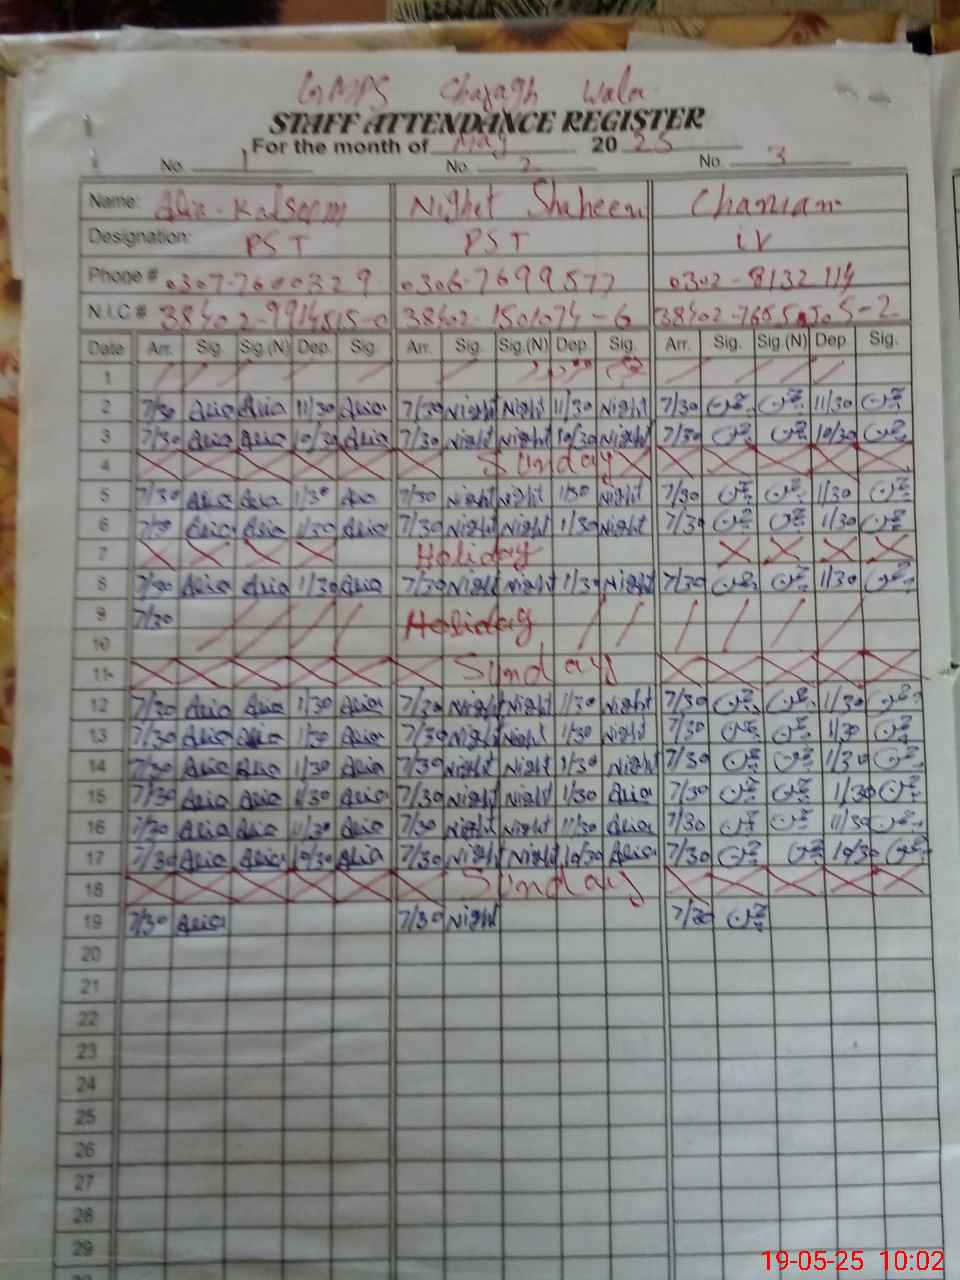 GMPS Chajagh Wala
STAFF ATTENDANCE REGISTER
For the month of May 2025
No. 1 No. 2 No. 3
Name: Alia-Kalsoom Nighet Shaheen Chaman
Designation: PST PST iv
Phone # 0307-7600329 0306-7699577 0302-8132114
N.I.C # 38402-9914515-0 38402-1501074-6 38402-
Date Arr. Sig. Sig.(N) Dep. Sig. Arr. Sig. Sig.(N) Dep. Sig. Arr. Sig. Sig.(N) Dep. Sig.
1
2 7/30 Alia Alia 11/30 Alia 7/30 Night Night 11/30 Night 7/30 11/30
3 7/30 Alia Alia 10/30 Alia 7/30 Night Night 10/30 Night 7/30 10/30
4 Sunday
5 7/30 Alia Alia 1/30 Alia 7/30 Night Night 1/30 Night 7/30 1/30
6 7/30 Alia Alia 1/30 Alia 7/30 Night Night 1/30 Night 7/30 1/30
7 Holiday
8 7/30 Alia Alia 1/30 Alia 7/30 Night Night 1/30 Night 7/30 1/30
9 7/30 Holiday
10
11 Sunday
12 7/30 Alia Alia 1/30 Alia 7/30 Night Night 1/30 Night 7/30 1/30
13 7/30 Alia Alia 1/30 Alia 7/30 Night Night 1/30 Night 7/30 1/30
14 7/30 Alia Alia 1/30 Alia 7/30 Night Night 1/30 Night 7/30 1/30
15 7/30 Alia Alia 1/30 Alia 7/30 Night Night 1/30 Alia 7/30 11/30
16 7/30 Alia Alia 11/30 Alia 7/30 Night Night 11/30 Alia 7/30 11/30
17 7/30 Alia Alia 10/30 Alia 7/30 Night Night 10/30 Alia 7/30 10/30
18 Sunday
19 7/30 Alia 7/30 Night 7/30
20
21
22
23
24
25
26
27
28
29
19-05-25 10:02